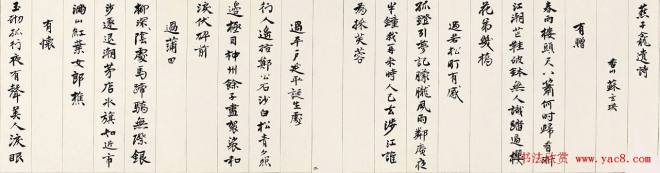 燕子龕遺詩
香山 蘇玄瑛
有贈
春雨樓頭尺八簫何時歸看浙
江潮芒鞋破鉢無人識踏過櫻
花第幾橋
過若松町有感
孤燈引夢記朦朧風雨鄰庵夜
半鐘我再來時人已去涉江誰
為采芙蓉
過平戶延平誕生處
行人遙指鄭公石沙白松青夕照
邊極目神州餘子盡袈裟和
淚伏碑前
過蒲田
柳深陰處馬蹄驕無際銀
沙逐退潮茅店冰旗知近市
滿山紅葉女郎樵
有懷
玉砌孤行夜有聲美人淚眼
书法欣赏
www.yac8.com